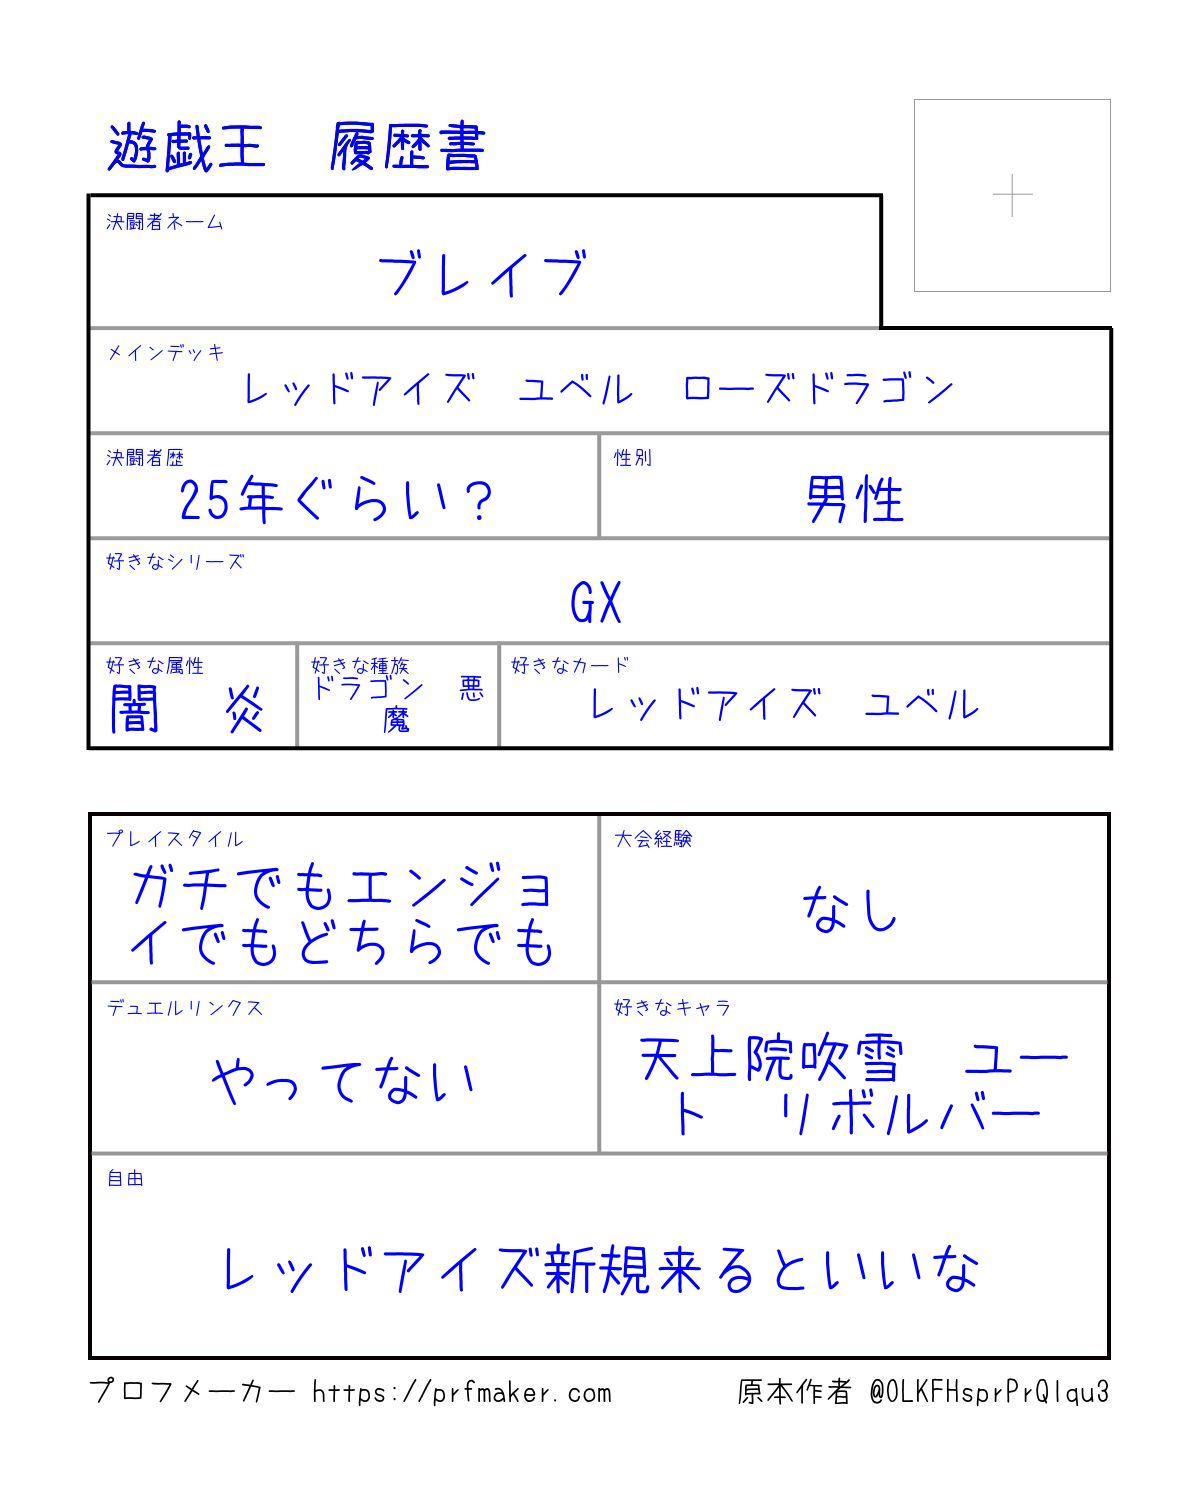 遊戯王　履歴書
決闘者ネーム
ブレイブ
メインデッキ
レッドアイズ　ユベル　ローズドラゴン
決闘者歴
25年ぐらい？
性別
男性
好きなシリーズ
GX
好きな属性
闇　炎
好きな種族
ドラゴン　悪
魔
好きなカード
レッドアイズ　ユベル
プレイスタイル
ガチでもエンジョ
イでもどちらでも
大会経験
なし
デュエルリンクス
やってない
好きなキャラ
天上院吹雪　ユー
ト　リボルバー
自由
レッドアイズ新規来るといいな
プロフメーカー https://prfmaker.com
原本作者 @0LKFHsprPrQlqu3